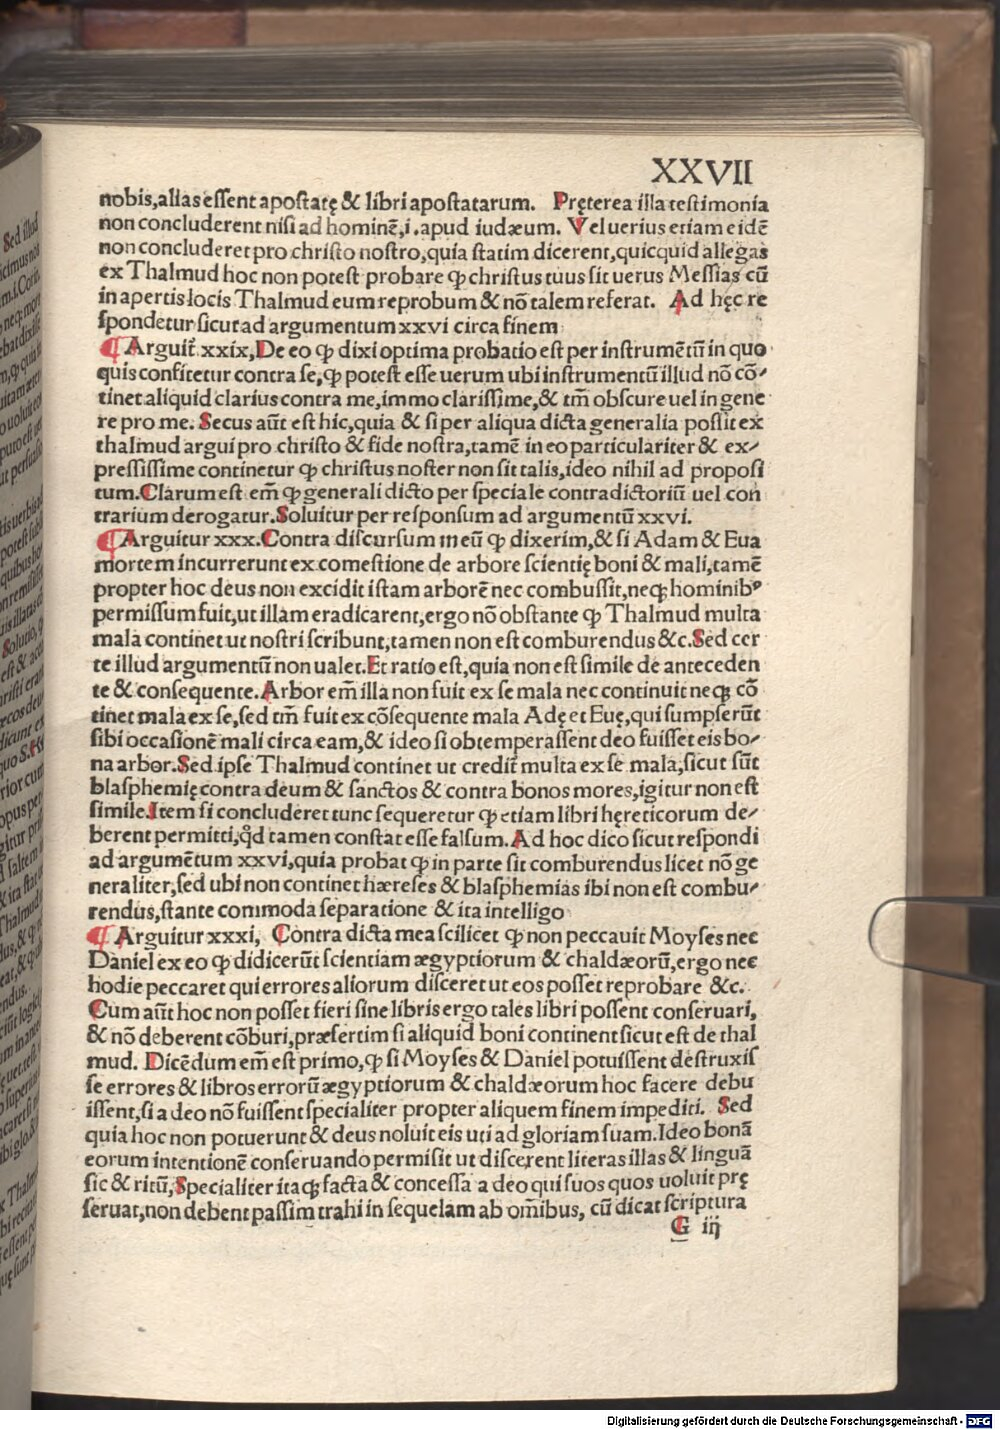 XXVII
nobis,alias essent apostatę & libri apostatarum. Pręterea illa testimonia
non concluderent nisi ad hominē,i.apud iudæum. Vel uerius etiam eidē
non concluderet pro christo nostro,quia statim dicerent,quicquid allegas
ex Thalmud hoc non potest probare ꝙ christus tuus sit uerus Messias cū
in apertis locis Thalmud eum reprobum & nō talem referat. Ad hęc re
spondetur sicut ad argumentum xxvi circa finem
¶ Arguit̃ xxix,De eo ꝙ dixi optima probatio est per instrumētū in quo
quis confitetur contra se,ꝙ potest esse uerum ubi instrumentū illud nō cō⸗
tinet aliquid clarius contra me,immo clarissime,& tm̄ obscure uel in gene
re pro me. Secus aūt est hic,quia & si per aliqua dicta generalia possit ex
thalmud argui pro christo & fide nostra,tamē in eo particulariter & ex⸗
pressissime continetur ꝙ christus noster non sit talis,ideo nihil ad proposi
tum.Clarum est em̄ ꝙ generali dicto per speciale contradictoriū uel con
trarium derogatur.Soluitur per responsum ad argumentū xxvi.
¶ Arguitur xxx.Contra discursum meū ꝙ dixerim,& si Adam & Eua
mortem incurrerunt ex comestione de arbore scientię boni & mali,tamē
propter hoc deus non excidit istam arborē nec combussit,neqꝫ hominibꝰ
permissum fuit,ut illam eradicarent,ergo nō obstante ꝙ Thalmud multa
mala continet ut nostri scribunt,tamen non est comburendus &c.Sed cer
te illud argumentū non ualet.Et ratio est,quia non est simile de anteceden
te & consequente.Arbor em̄ illa non fuit ex se mala nec continuit neqꝫ cō
tinet mala ex se,sed tm̄ fuit ex cōsequente mala Adę et Euę,qui sumpserūt
sibi occasionē mali circa eam,& ideo si obtemperassent deo fuisset eis bo⸗
na arbor.Sed ipse Thalmud continet ut credit̃ multa ex se mala,sicut sūt
blasphemię contra deum & sanctos & contra bonos mores,igitur non est
simile.Item si concluderet tunc sequeretur ꝙ etiam libri hęreticorum de⸗
berent permitti,qd̃ tamen constat esse falsum.Ad hoc dico sicut respondi
ad argumētum xxvi,quia probat ꝙ in parte sit comburendus licet nō ge
neraliter,sed ubi non continet hæreses & blasphemias ibi non est combu⸗
rendus,stante commoda separatione & ita intelligo
¶ Arguitur xxxi, Contra dicta mea scilicet ꝙ non peccauit Moyses nec
Daniel ex eo ꝙ didicerūt scientiam ægyptiorum & chaldæorū,ergo nec
hodie peccaret qui errores aliorum disceret ut eos posset reprobare &c.
Cum aūt hoc non posset fieri sine libris ergo tales libri possent conseruari,
& nō deberent cōburi,præsertim si aliquid boni continent sicut est de thal
mud. Dicēdum em̄ est primo,ꝙ si Moyses & Daniel potuissent destruxis
se errores & libros errorū ægyptiorum & chaldæorum hoc facere debu
issent,si a deo nō fuissent specialiter propter aliquem finem impediti. Sed
quia hoc non potuerunt & deus noluit eis uti ad gloriam suam.Ideo bonā
eorum intentionē conseruando permisit ut discerent literas illas & linguā
sic & ritū,Specialiter itaqꝫ facta & concessa a deo qui suos quos uoluit prę
seruat,non debent passim trahi in sequelam ab om̄ibus, cū dicat scriptura
G iij
Digitalisierung gefördert durch die Deutsche Forschungsgemeinschaft - DFG